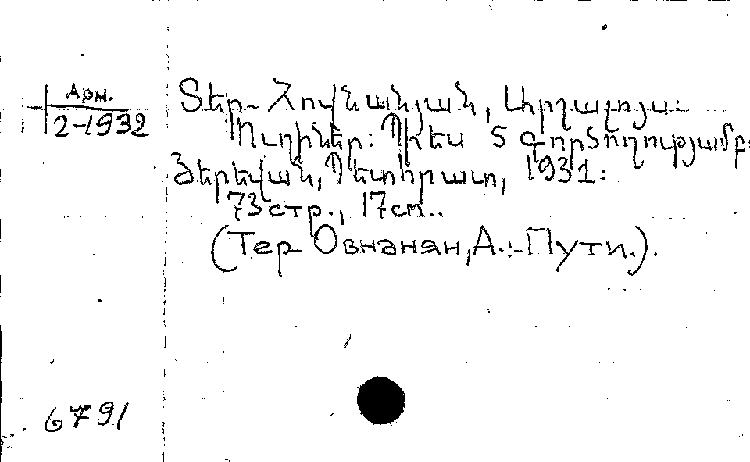 Арм.
2-1932
Տեր-Հովնանյան,
Ուղիներ: Պիես 5 գործողությամբ.
Յերեվան, Պետհրատ, 1931:
73 стр., 17 см..
(Тер Овнанян, А.-Пути.).
6791